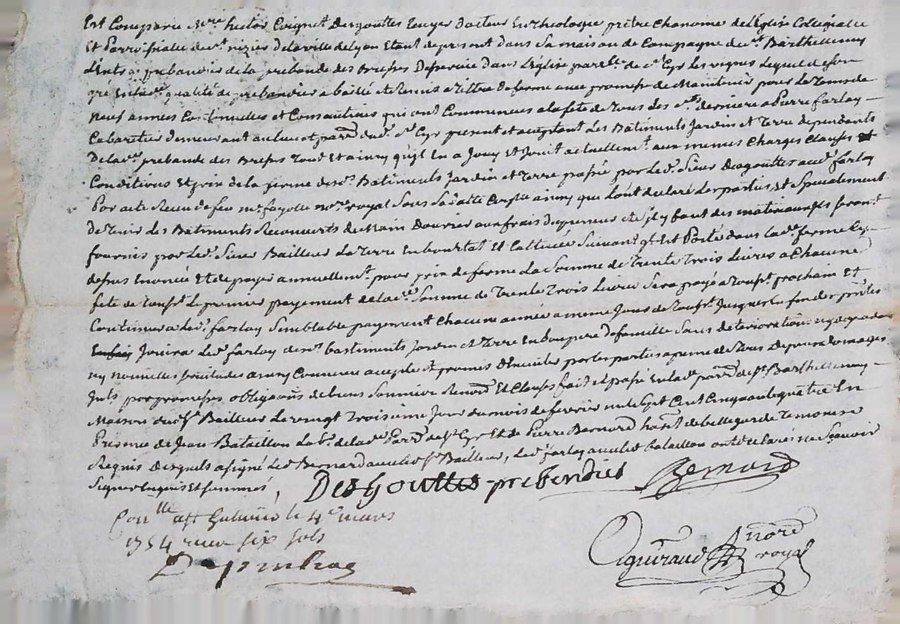 Est Comparu Mre hector Coignet Desgouttes Ecuyer Docteur En theologie prêtre Chanoine de L'Eglise Collegialle
Et Parroissialle de st nizier de la ville de Lyon Etant de present dans sa maison de Campagne de st Barthellemy
prebandier de la prebande des Desservie dans L'Eglise parralle de st Cyr les vignes Lequel de son
gré En lade qualité de prebandier a baillé et remis a tittre de ferme avec promesse de Maintenir pour le tems de
neuf années Continuelles et Consecutives qui ont Commencé a la fete de Tous les sts derniere a Pierre farlay
Cabaretier demeurant au lieu et parrse dud. st Cyr present et acceptant Les Bâtiments Jardin et Terre dependants
De lade prebande des Tout Et ainsy qu'il En a Jouy Et Jouit actuellemt aux memes Charges Clauses Et
Conditions Et prix de la ferme desd. Batiments Jardin et Terre passée par led. Sieur Desgouttes aud. farlay
Par acte Receu de feu Me fayolle nore royal sous sa datte Ainsy que l'ont declaré Les parties Et Specialement
de tenir les Bâtiments Recouverts de Main Douvrier aux frais du preneur
fournis par led. Sieur Bailleur La Terre En bon Etat Et Cultivée Suivant qu'il Est Porté dans lade ferme Cy
dessus Enoncée Et de payer annuellemt pour prix de ferme La Somme de Trente Trois Livres a Chacune
fete de Le premier payement de lade Somme de Trente Trois Livres Sera payé a prochain Et
Continuera led. farlay Semblable payement Chacune année a meme Jour de Jusques la fin des ptes
Jouira led. farlay desd. bastiments Jardin et Terre En bon pere de famille Sans deterioration ny degradaon
ny nouvelles Servitudes ainsy Convenu accepté et promis d'Executer par les parties a peine de Tous Depens domages
Ints par promesses obligaons de biens Soumissions Renons Et Clauses fait et passé En lade parrse de st Barthellemy
Maison dud. Sr Bailleur Le vingt Troisieme Jour du mois de fevrier mil Sept Cent Cinquante quatre En
Presence de Jean Bataillon de lade Parrse de st Cyr Et de Pierre Bernard habnt de bellegarde Temoins
Requis Desquels a signé Led. Bernard avec led. Sr Bailleur, Led. farlay avec led. bataillon ont declaré ne Sçavoir
Signer Enquis Et Sommés,
Desgouttes prebendier Bernard
Conllé a St Galmier le 4e mars
1754 reçu six sols
nore
royal